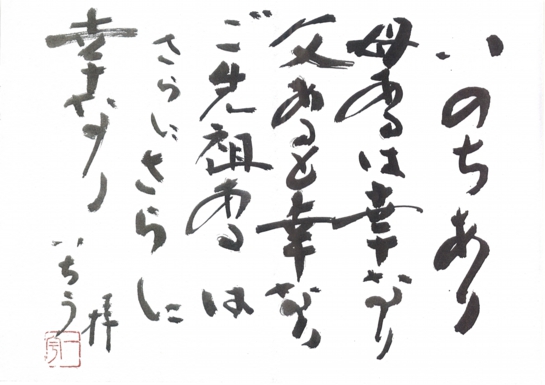 いのちあり
母あるは幸なり
父あると幸なり
ご先祖あるは
さらにさらに
幸なり
いちう拝